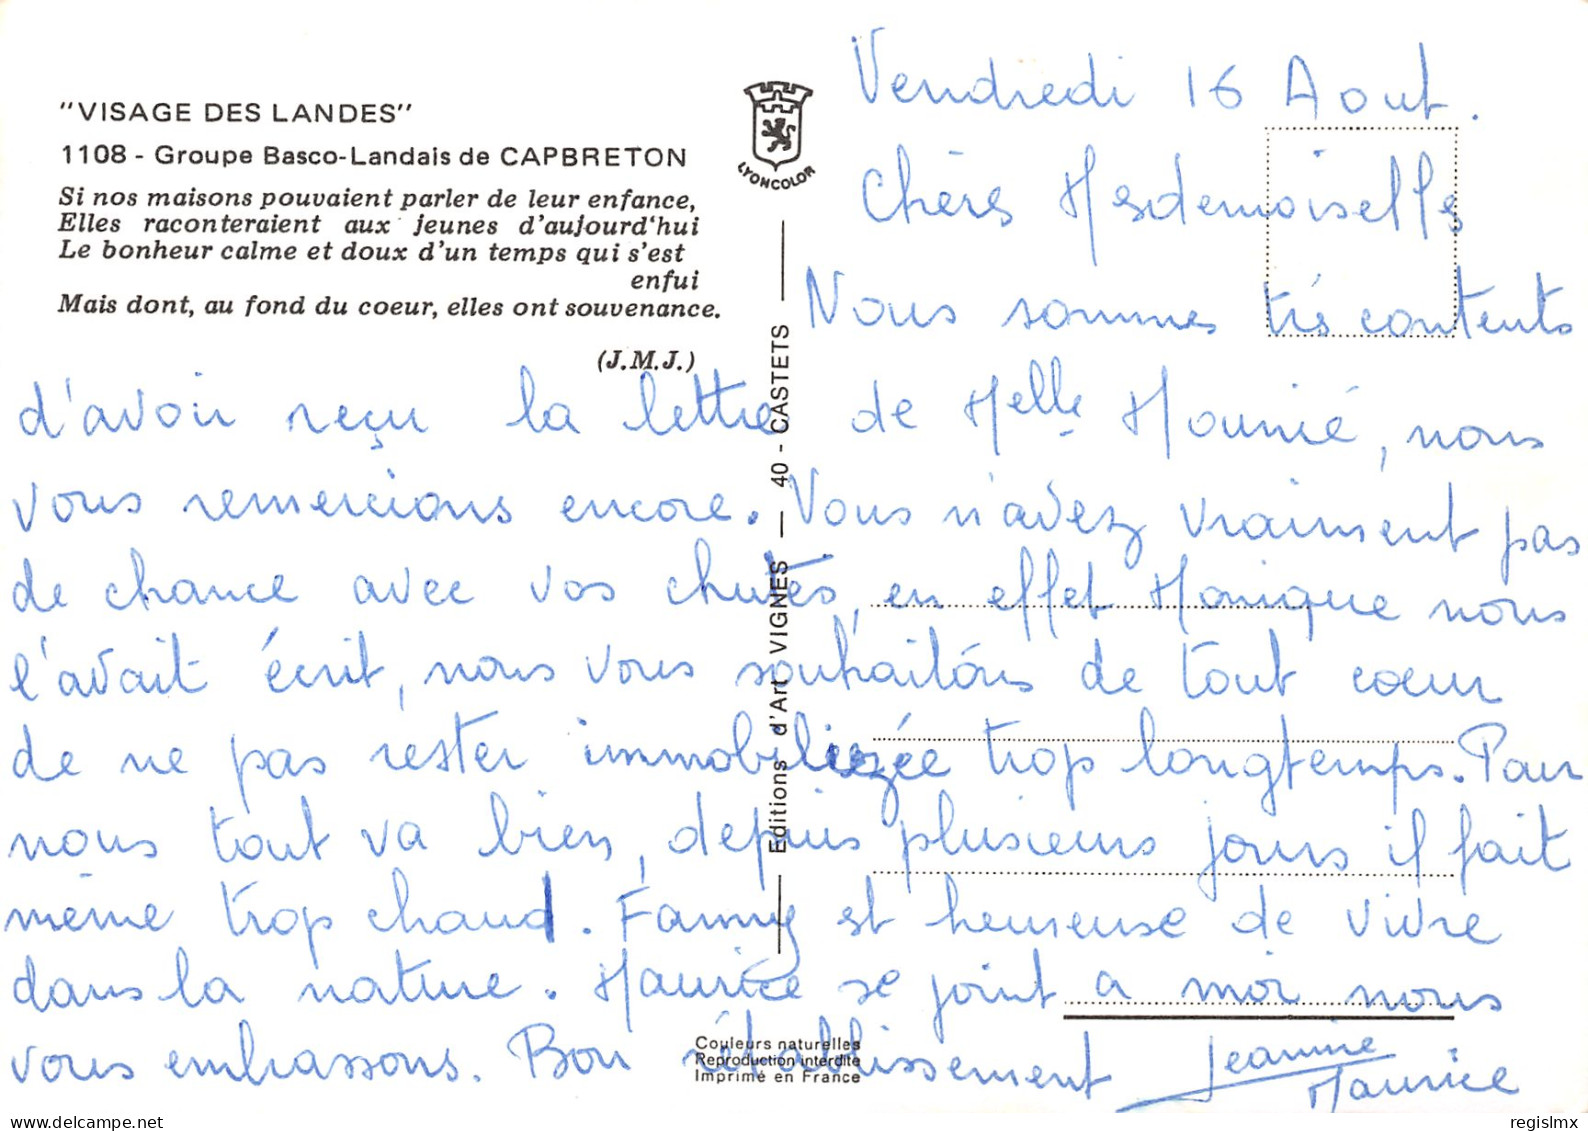 "VISAGE DES LANDES"
1108 - Groupe Basco-Landais de CAPBRETON
Si nos maisons pouvaient parler de leur enfance,
Elles raconteraient aux jeunes d'aujourd'hui
Le bonheur calme et doux d'un temps qui s'est
enfui
Mais dont, au fond du coeur, elles ont souvenance.
(J.M.J.)
LYONCOLOR
Editions d'Art VIGNES — 40 - CASTETS
Vendredi 16 Aout.
Chères Mesdemoiselles
Nous sommes très contents
d'avoir reçu la lettre de Melle Mounié, nous
vous remercions encore. Vous n'avez vraiment pas
de chance avec vos chutes, en effet Monique nous
l'avait écrit, nous vous souhaitons de tout cœur
de ne pas rester immobilizée trop longtemps. Pour
nous tout va bien, depuis plusieurs jours il fait
même trop chaud. Fanny est heureuse de vivre
dans la nature. Maurice se joint a moi nous
vous embrassons. Bon rétablissement Jeannine
Maurice
Couleurs naturelles
Reproduction interdite
Imprimé en France
regislmx